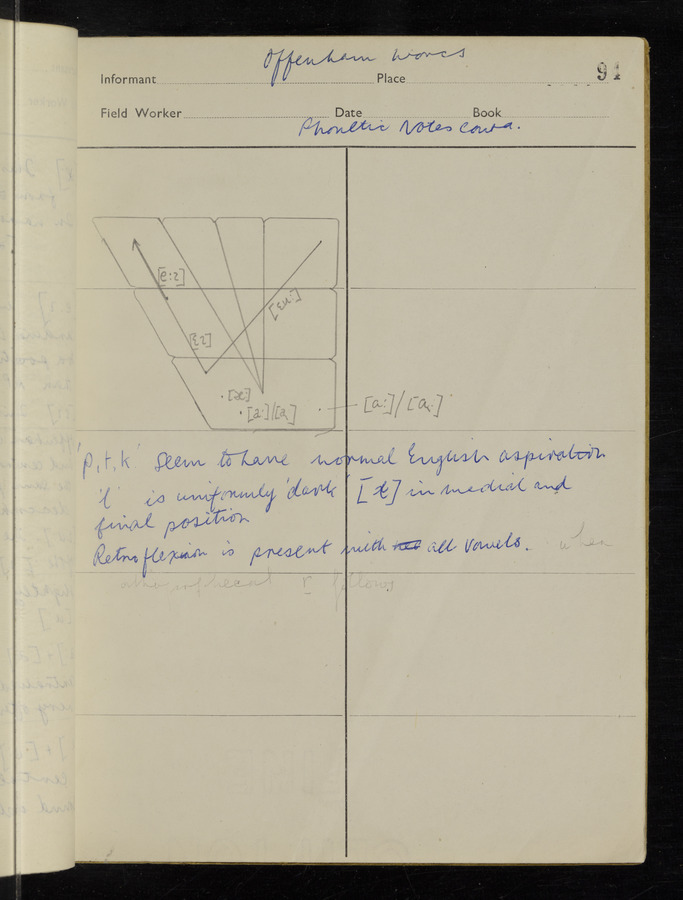 Offenham Worcs
Informant Place 91
Field Worker Date Book
Phonetic Notes contd.
[e:ɪ]
[ɛu:]
[ɛɪ]
[æ]
[a:]/[a]
[ɑ:]/[ɑ]
'p, t, k' seem to have normal English aspiration
'l' is uniformly 'dark' [ɫ] in medial and
final position
Retroflexion is present with all vowels. when
orthographical r follows